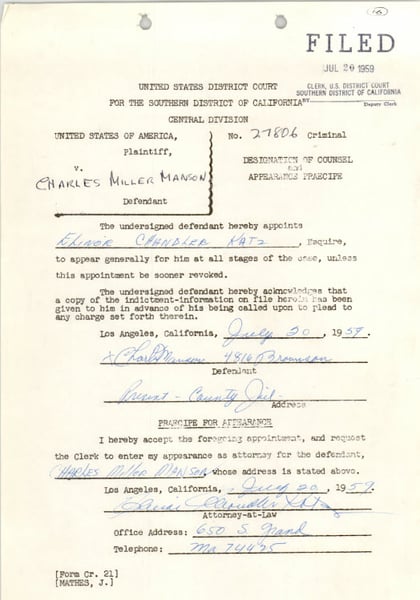 16
FILED
JUL 20 1959
CLERK, U.S. DISTRICT COURT
SOUTHERN DISTRICT OF CALIFORNIA
BY
Deputy Clerk
UNITED STATES DISTRICT COURT
FOR THE SOUTHERN DISTRICT OF CALIFORNIA
CENTRAL DIVISION
UNITED STATES OF AMERICA,
Plaintiff,
v.
CHARLES MILLER MANSON
Defendant
No. 27806 Criminal
DESIGNATION OF COUNSEL
and
APPEARANCE PRAECIPE
The undersigned defendant hereby appoints
ELINOR CHANDLER KATZ, Esquire,
to appear generally for him at all stages of the case, unless
this appointment be sooner revoked.
The undersigned defendant hereby acknowledges that
a copy of the indictment-information on file herein has been
given to him in advance of his being called upon to plead to
any charge set forth therein.
Los Angeles, California, July 20, 1959.
x Charles Manson 4816 Bronson
Defendant
Present - County Jail -
Address
PRAECIPE FOR APPEARANCE
I hereby accept the foregoing appointment, and request
the Clerk to enter my appearance as attorney for the defendant,
CHARLES MILLER MANSON whose address is stated above.
Los Angeles, California, July 20, 1959.
Elinor Chandler Katz
Attorney-at-Law
Office Address: 650 S. Grand
Telephone: Ma 74475
[Form Cr. 21]
[MATHES, J.]